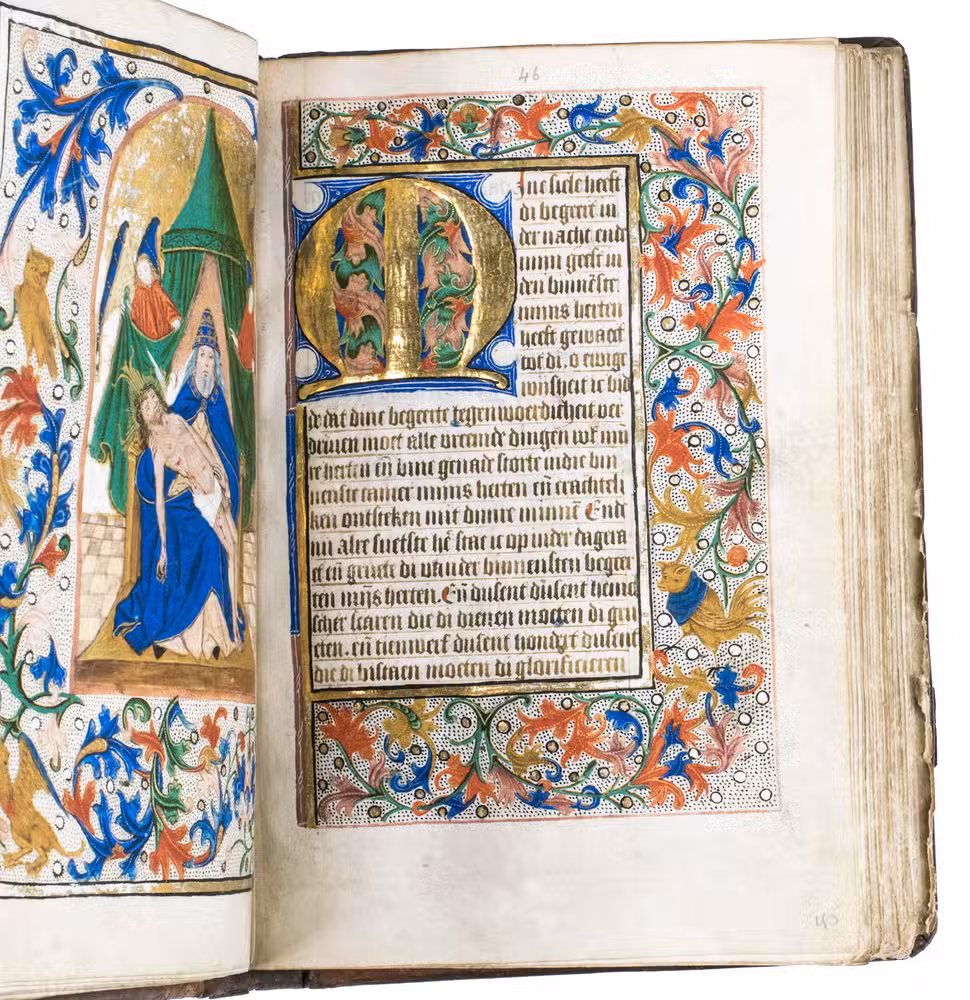 46
M
ine siele heeft
di begeert in
der nacht ende
mijn geest in
den binnẽste
mijns herten
heeft gewaect
tot di. o ewige
wijsheit ic bid
de dat dine begeerte tegenwoerdicheit ver
driuen moet alle vreemde dingen wt mij
re herten eñ dine genade storte in die bin
nenste camer mijns herten eñ crachteli
ken ontsteken mit dinre minnẽ Ende
mi alre suetste hẽ stae ic op in der dagera
et eñ gruete di wt minder binnensten begeer
ten mijns herten. Eñ dusent dusent hemel
scher scaren die di dienen moeten di gru
eten. eñ tienwerf dusent hondert dusent
die di bistaen moeten di glorificieren
45